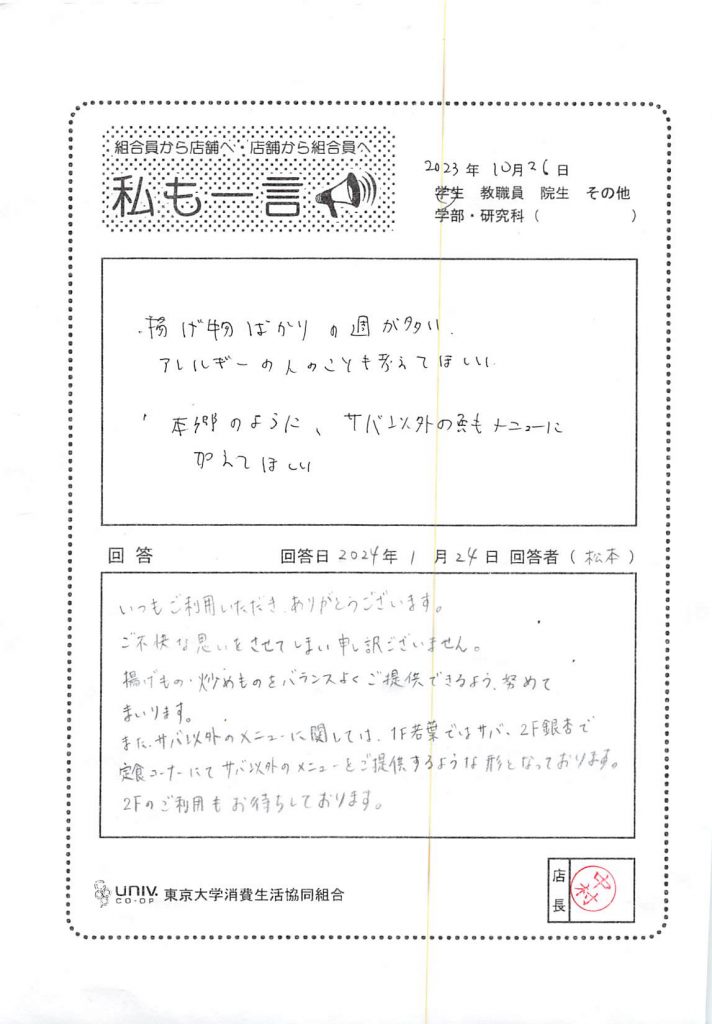 組合員から店舗へ・店舗から組合員へ
私も一言
2023年10月26日
学生 教職員 院生 その他
学部・研究科( )
・揚げ物ばかりの週が多い.
アレルギーの人のことも考えてほしい.
・本郷のように、サバ以外の魚もメニューに
加えてほしい
回答 回答日 2024年 1月24日 回答者(松本)
いつもご利用いただき、ありがとうございます。
ご不快な思いをさせてしまい申し訳ございません。
揚げもの・炒めものをバランスよくご提供できるよう、努めて
まいります。
また、サバ以外のメニューに関しては、1F若葉ではサバ、2F銀杏で
定食コーナーにてサバ以外のメニューをご提供するような形となっております。
2Fのご利用もお待ちしております。
UNIV.
CO-OP
東京大学消費生活協同組合
店長
中村